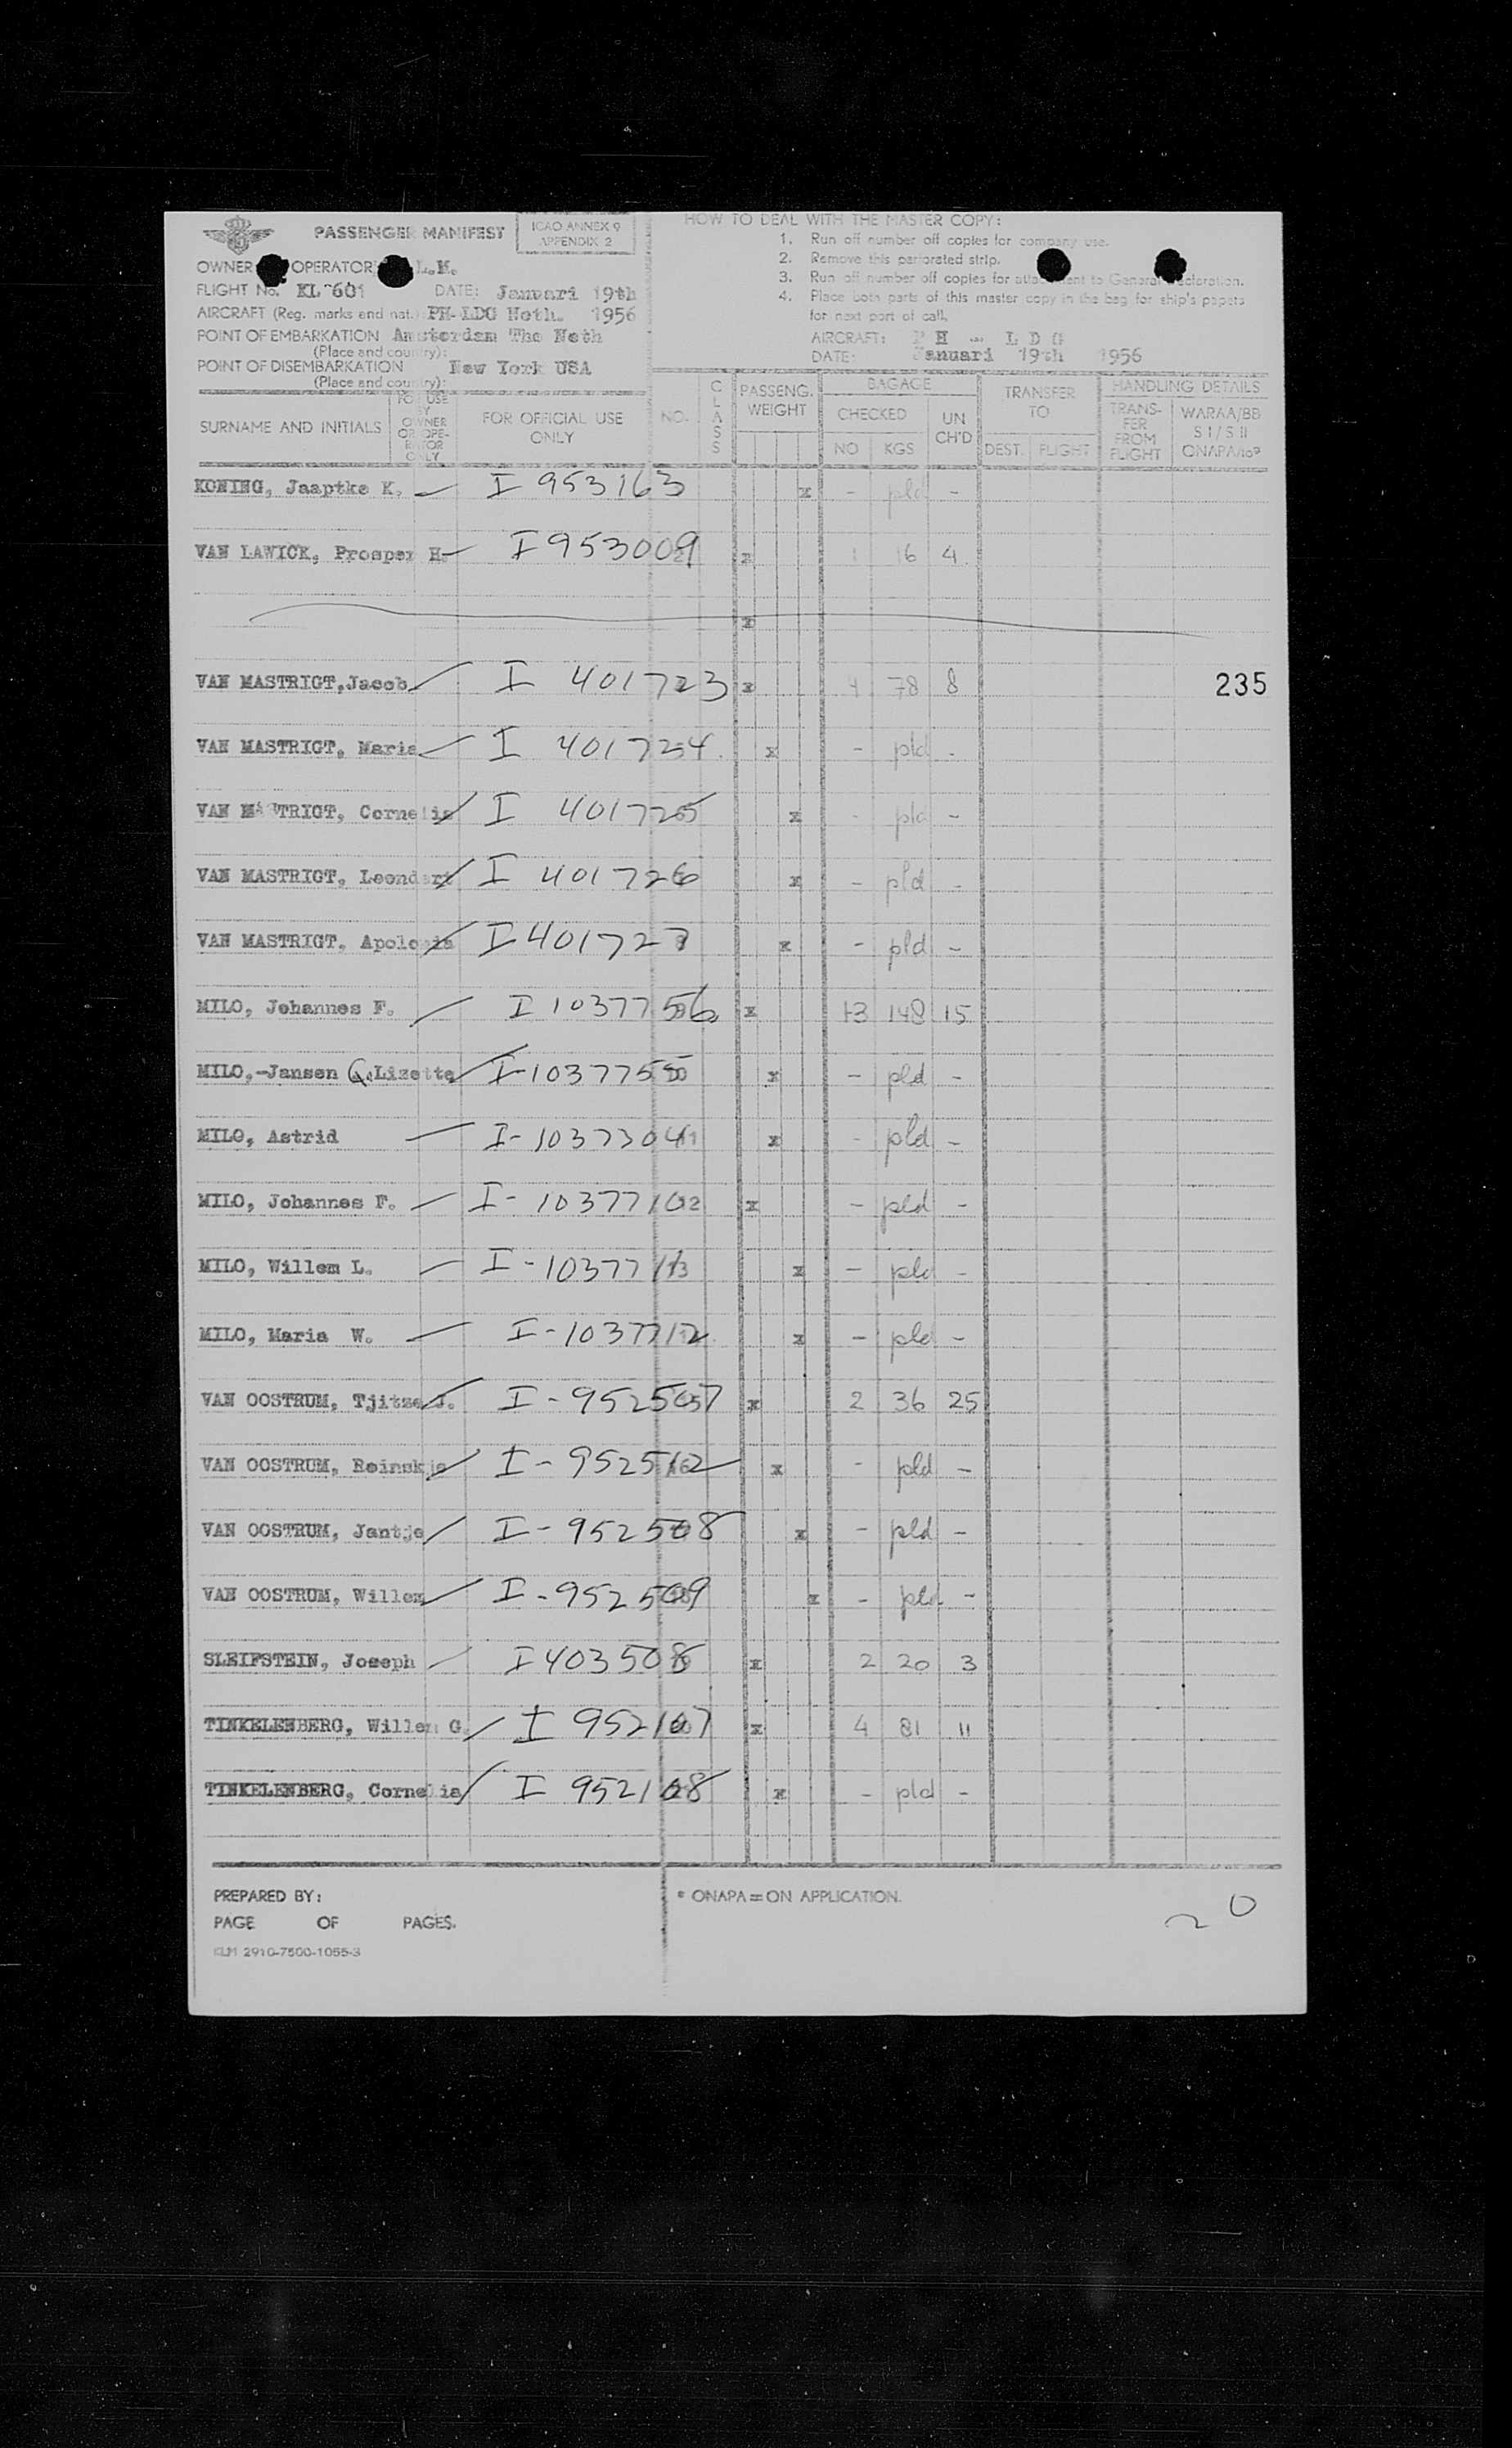 PASSENGER MANIFEST
ICAO ANNEX 9
APPENDIX 2
OWNER OPERATOR L.M.
FLIGHT No. KL 601 DATE: Januari 19th
AIRCRAFT (Reg. marks and nat.) PH-LDG Neth. 1956
POINT OF EMBARKATION Amsterdam The Neth
(Place and country):
POINT OF DISEMBARKATION New York USA
(Place and country):
HOW TO DEAL WITH THE MASTER COPY:
1. Run off number off copies for company use.
2. Remove this perforated strip.
3. Run off number off copies for attachment to General Declaration.
4. Place both parts of this master copy in the bag for ship's papers
for next port of call.
AIRCRAFT: P H - L D G
DATE: Januari 19th 1956
SURNAME AND INITIALS
FOR USE BY OWNER OR OPE-RATOR ONLY
FOR OFFICIAL USE ONLY
NO.
CLASS
PASSENG. WEIGHT
BAGAGE
CHECKED
NO KGS
UN CH'D
TRANSFER TO
DEST. FLIGHT
HANDLING DETAILS
TRANS-FER FROM FLIGHT
WARAA/BB S I / S II ONAPA/to*
KONING, Jaaptke K. I 953163 x - pld -
VAN LAWICK, Prosper H. I 953009 x 1 16 4
x
VAN MASTRIGT, Jacob I 401723 x 4 78 8
235
VAN MASTRIGT, Maria I 401724 x - pld -
VAN MASTRIGT, Cornelis I 401725 x - pld -
VAN MASTRIGT, Leendert I 401726 x - pld -
VAN MASTRIGT, Apolonia I 401727 x - pld -
MILO, Johannes F. I 1037756 x 13 148 15
MILO,-Jansen G. Lizette I-1037755 x - pld -
MILO, Astrid I-1037304 x - pld -
MILO, Johannes F. I-1037710 x - pld -
MILO, Willem L. I-1037711 x - pld -
MILO, Maria W. I-1037712 x - pld -
VAN OOSTRUM, Tjitze J. I-952507 x 2 36 25
VAN OOSTRUM, Reinskje I-952512 x - pld -
VAN OOSTRUM, Jantje I-952508 x - pld -
VAN OOSTRUM, Willem I-952509 x - pld -
SLEIFSTEIN, Joseph I 403508 x 2 20 3
TINKELENBERG, Willem G. I 952107 x 4 81 11
TINKELENBERG, Cornelia I 952108 x - pld -
PREPARED BY:
PAGE OF PAGES.
KLM 2910-7500-1055-3
* ONAPA = ON APPLICATION.
20